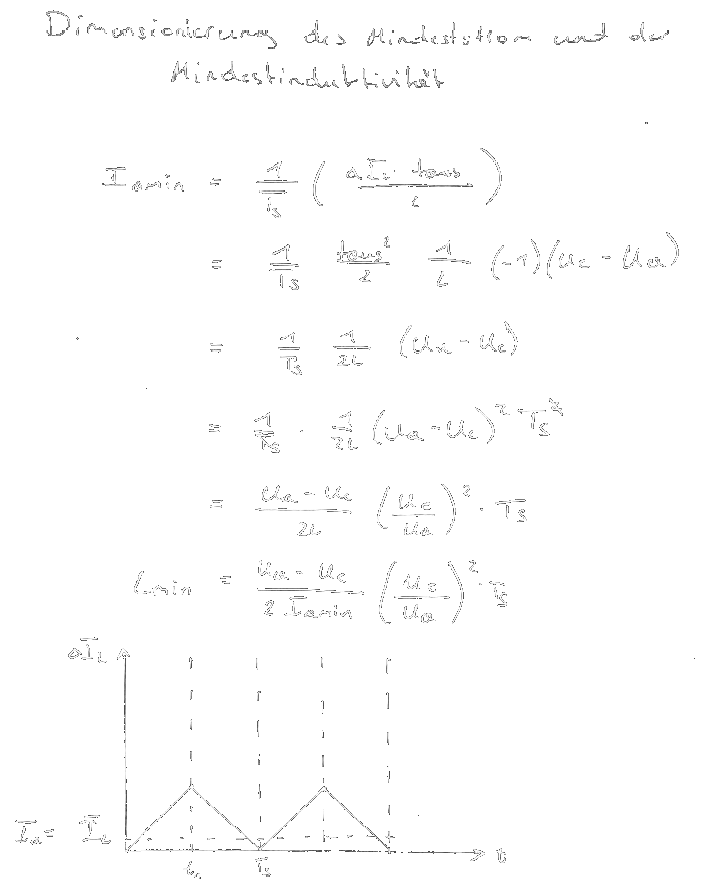 Dimensionierung des Mindeststrom und der
Mindestinduktivität
I_amin = 1/T_s ( ΔI_L · t_aus / 2 )
= 1/T_s t_aus²/2 1/L (-1)(U_e - U_a)
= 1/T_s 1/2L (U_a - U_e)
= 1/T_s · 1/2L (U_a - U_e)² · T_s²
= U_a - U_e / 2L (U_e/U_a)² · T_s
L_min = U_a - U_e / 2 I_amin (U_e/U_a)² · T_s
ΔI_L
I_a = I_L
T_s
t